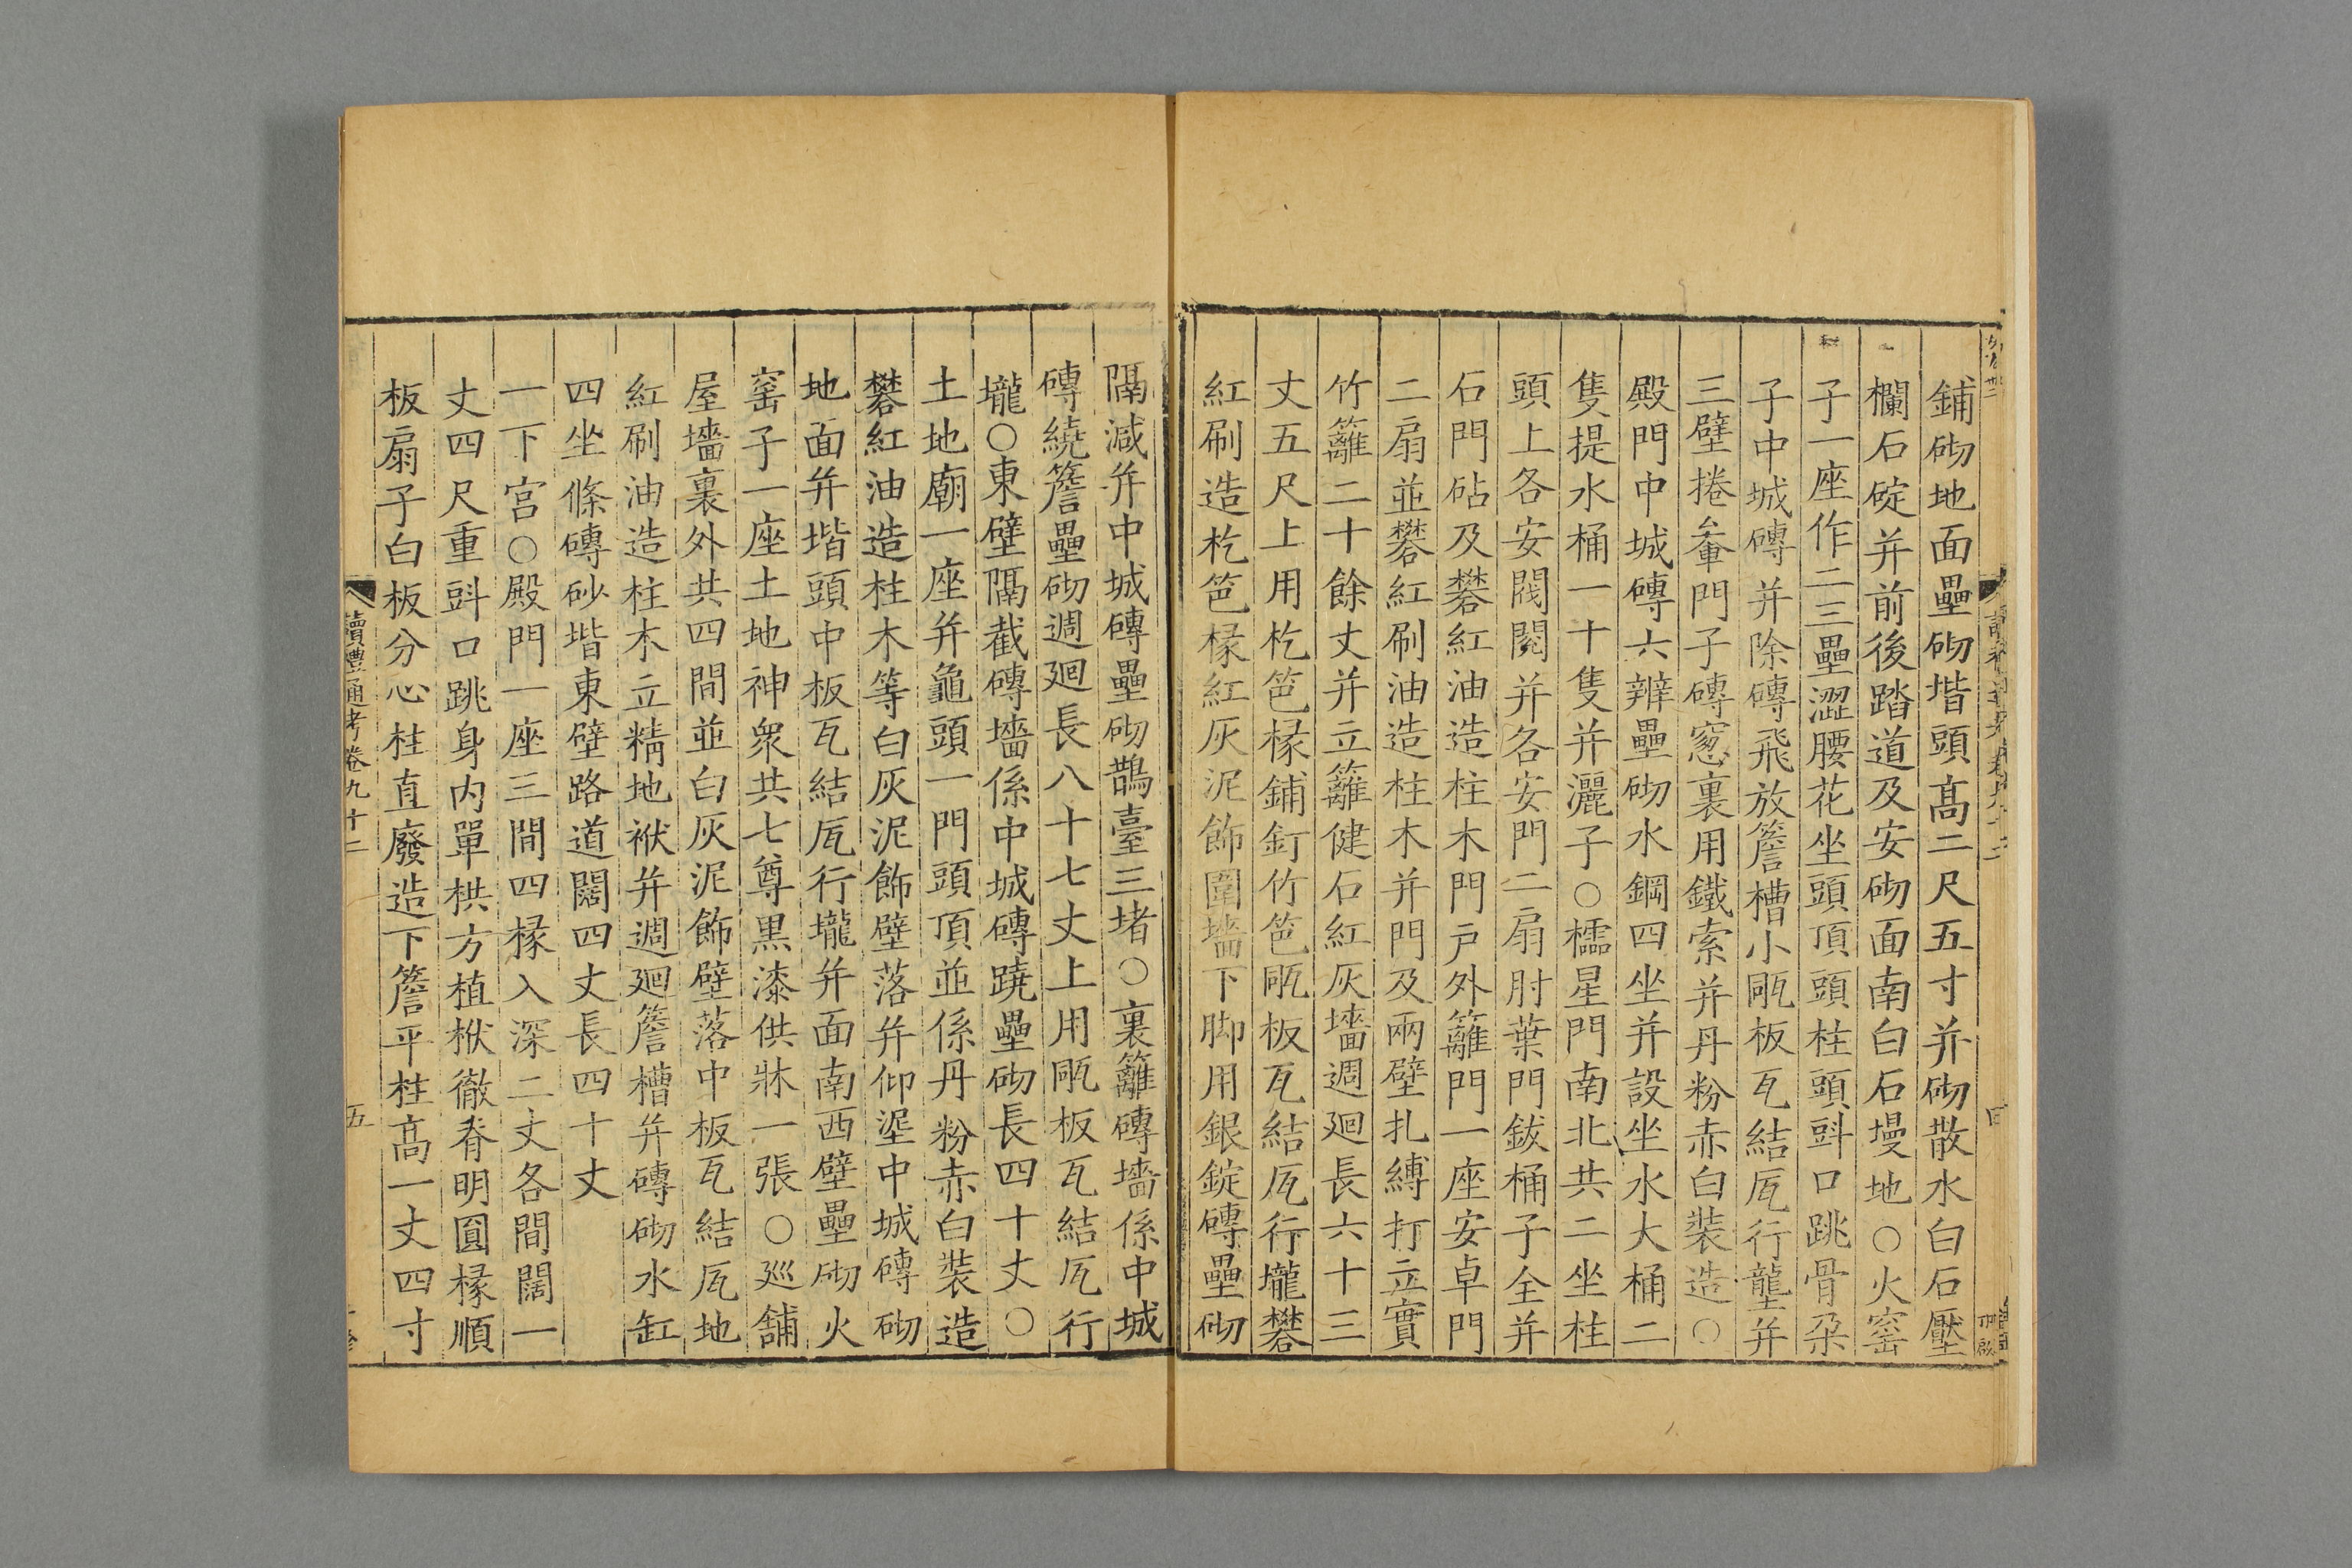 鋪砌地面壘砌堦頭髙二尺五寸并砌散水白石壓
欄石碇并前後踏道及安砌面南白石墁地○火窑
子一座作二三壘澀腰花坐頭頂頭柱頭㪷口跳骨朶
子中城磚并除磚飛放簷槽小㼧板瓦結瓪行壟并
三壁捲輂門子磚窻裏用鐵索并丹粉赤白裝造○
殿門中城磚六辧壘砌水鋼四坐并設坐水大桶二
隻提水桶一十隻并灑子○櫺星門南北共二坐柱
頭上各安閥閱并各安門二扇肘葉門鈸桶子全并
石門砧及礬紅油造柱木門戸外籬門一座安卓門
二扇並礬紅刷油造柱木并門及兩壁扎縛打立實
竹籬二十餘丈并立籬健石紅灰墻週廻長六十三
丈五尺上用杚笆椽鋪釘竹笆㼧板瓦結瓪行壠礬
紅刷造杚笆椽紅灰泥飾圍墻下脚用銀錠磚壘砌
隔減并中城磚壘砌鵲臺三堵○裏籬磚墻係中城
磚繞簷壘砌週廻長八十七丈上用㼧板瓦結瓪行
壠○東壁隔截磚墻係中城磚蹺壘砌長四十丈○
土地廟一座并龜頭一門頭頂並係丹粉赤白裝造
礬紅油造柱木等白灰泥飾壁落并仰埿中城磚砌
地面并堦頭中板瓦結瓪行壠并面南西壁壘砌火
窑子一座土地神衆共七尊黒漆供牀一張○廵舗
屋墻裏外共四間並白灰泥飾壁落中板瓦結瓪地
紅刷油造柱木立精地袱并週廻簷槽并磚砌水缸
四坐條磚砂堦東壁路道闊四丈長四十丈
一下宫○殿門一座三間四椽入深二丈各間闊一
丈四尺重㪷口跳身内單栱方植栿徹脊明圓椽順
板扇子白板分心柱直廢造下簷平柱髙一丈四寸
讀禮通考卷九十二
五